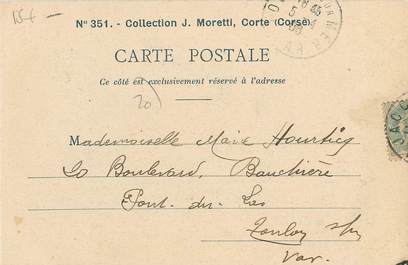 Nº 351. - Collection J. Moretti, Corte (Corse)
CARTE POSTALE
Ce côté est exclusivement réservé à l'adresse
20
Mademoiselle Marie Hourticq
20 Boulevard
Pont du Las
Toulon s/m
Var.
JACC